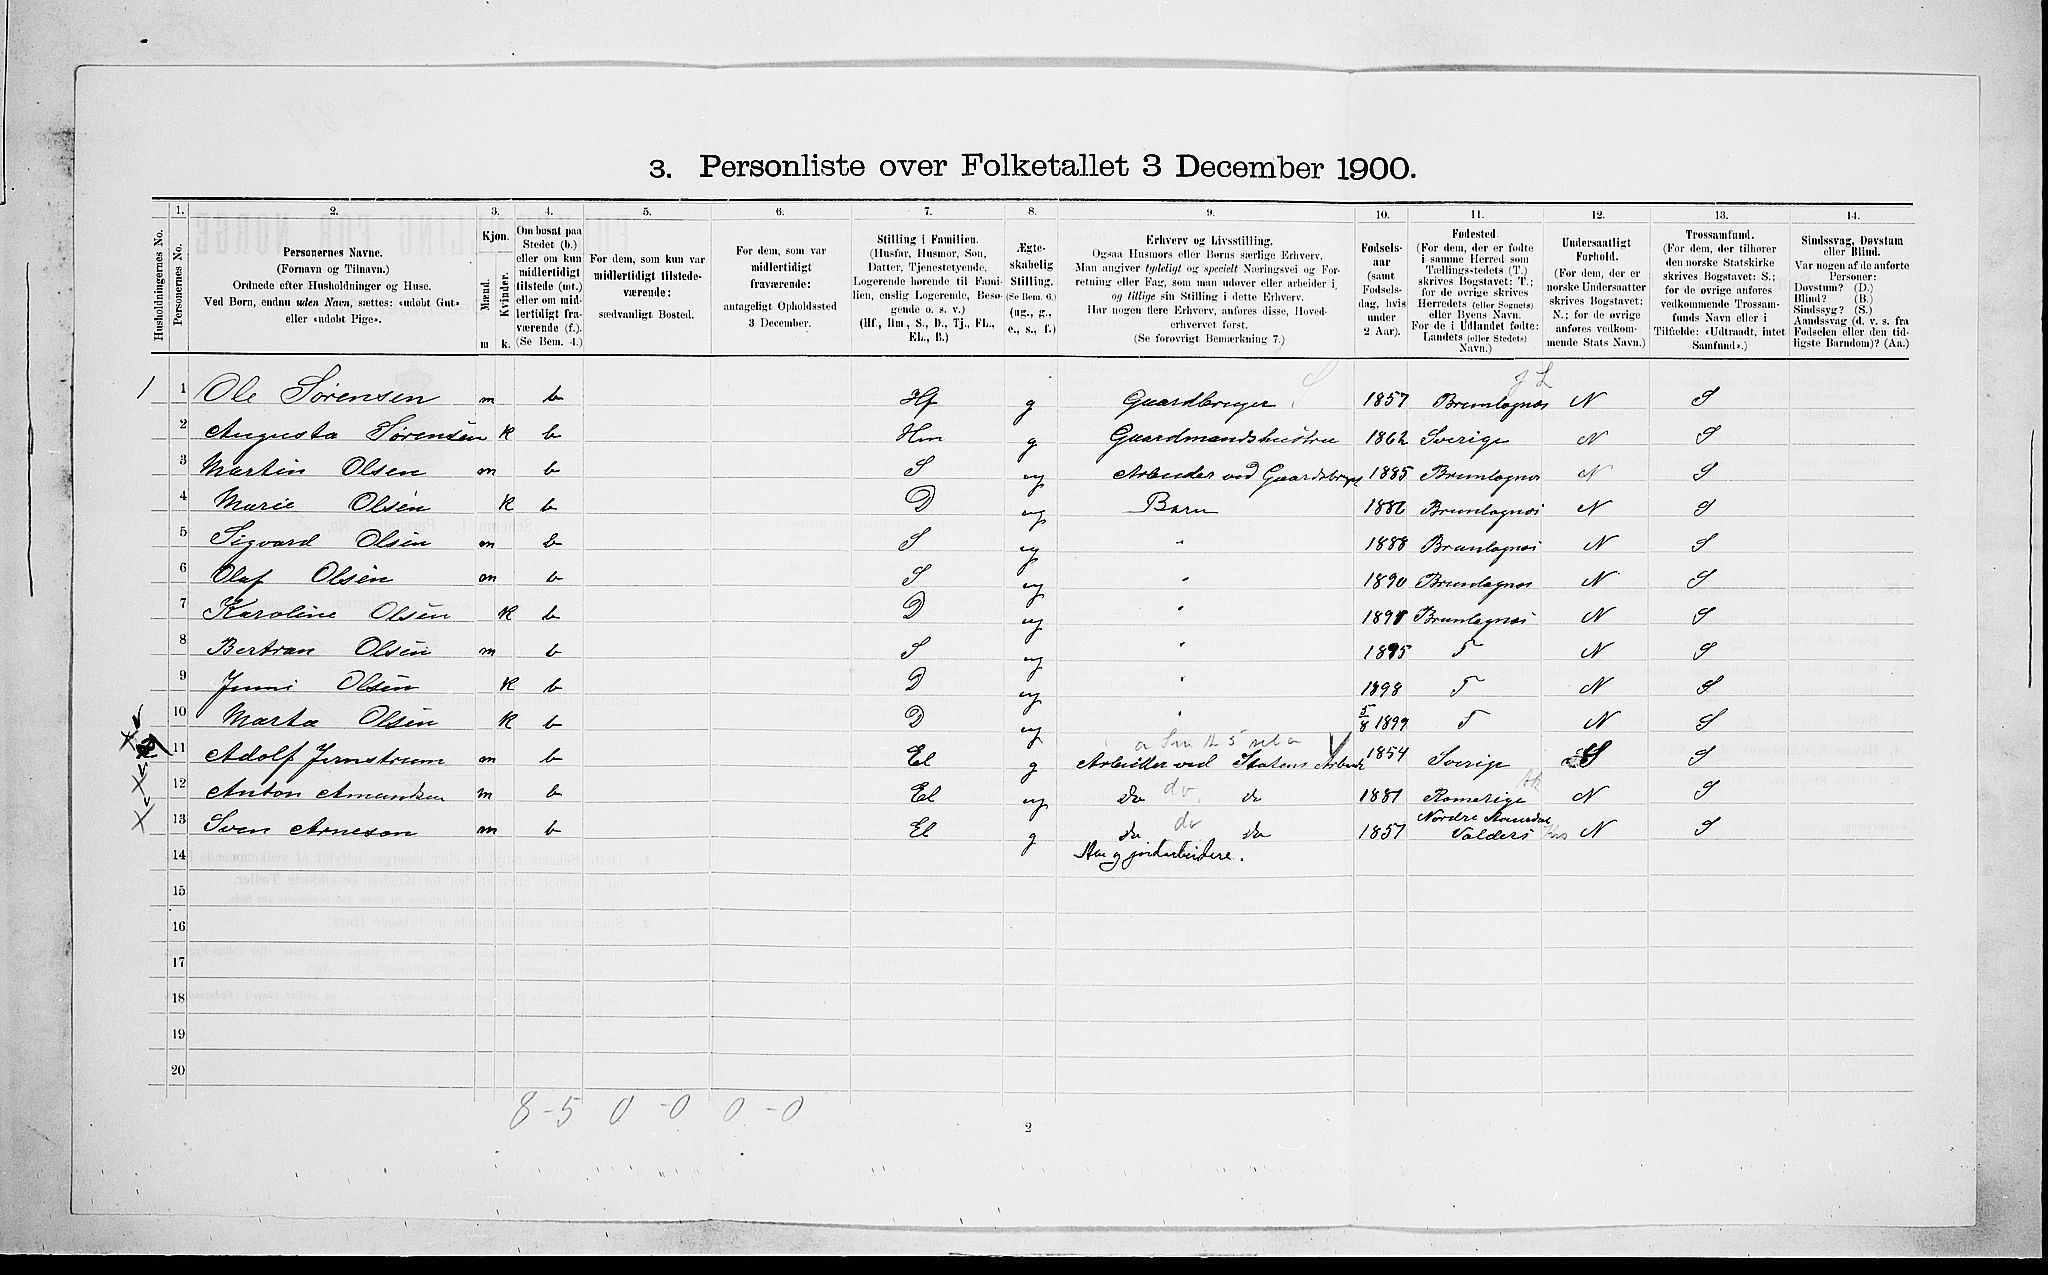 3. Personliste over Folketallet 3 December 1900.
Husholdningernes No.
1. Personernes No.
2. Personernes Navne. (Fornavn og Tilnavn.) Ordnede efter Husholdninger og Huse. Ved Børn, endnu uden Navn, sættes: «udøbt Gut» eller «udøbt Pige».
3. Kjøn. Mænd. m Kvinder. k.
4. Om bosat paa Stedet (b.) eller om kun midlertidigt tilstede (mt.) eller om midlertidigt fraværende (f.). (Se Bem. 4.)
5. For dem, som kun var midlertidigt tilstedeværende: sædvanligt Bosted.
6. For dem, som var midlertidigt fraværende: antageligt Opholdssted 3 December.
7. Stilling i Familien. (Husfar, Husmor, Søn, Datter, Tjenestetyende, Logerende hørende til Familien, enslig Logerende, Besøgende o. s. v.) (Hf., Hm., S., D., Tj., FL., EL., B.)
8. Ægteskabelig Stilling. (Se Bem. 6.) (ug., g., e., s., f.)
9. Erhverv og Livsstilling. Ogsaa Husmors eller Børns særlige Erhverv. Man angiver tydeligt og specielt Næringsvei og Forretning eller Fag, som man udøver eller arbeider i, og tillige sin Stilling i dette Erhverv. Har nogen flere Erhverv, anføres disse, Hovederhvervet først. (Se forøvrigt Bemærkning 7.)
10. Fødselsaar (samt Fødselsdag, hvis under 2 Aar).
11. Fødested. (For dem, der er fødte i samme Herred som Tællingsstedets (T.) skrives Bogstavet: T.; for de øvrige skrives Herredets (eller Sognets) eller Byens Navn. For de i Udlandet fødte: Landets (eller Stedets) Navn.)
12. Undersaatligt Forhold. (For dem, der er norske Undersaatter skrives Bogstavet: N.; for de øvrige anføres vedkommende Stats Navn.)
13. Trossamfund. (For dem, der tilhører den norske Statskirke skrives Bogstavet: S.; for de øvrige anføres vedkommende Trossamfunds Navn eller i Tilfælde: «Udtraadt, intet Samfund».)
14. Sindssvag, Døvstum eller Blind. Var nogen af de anførte Personer: Døvstum? (D.) Blind? (B.) Sindssyg? (S.) Aandssvag (d. v. s. fra Fødselen eller den tidligste Barndom)? (Aa.)
1 1 Ole Sørensen m b Hf g Gaardbruger 1857 Brunlagnæs N S
2 Augusta Sørensen k b Hm g Gaardmandshustru 1862 Sverige N S
3 Martin Olsen m b S ug Arbeider ved Gaardsbrug 1885 Brunlagnæs N S
4 Marie Olsen k b D ug Barn 1886 Brunlagnæs N S
5 Sigvard Olsen m b S ug " 1888 Brunlagnæs N S
6 Olaf Olsen m b S ug " 1890 Brunlagnæs N S
7 Karoline Olsen k b D ug " 1891 Brunlagnæs N S
8 Bertran Olsen m b S ug " 1895 T N S
9 Jenni Olsen k b D ug " 1898 T N S
10 Marta Olsen k b D ug " 5/8 1899 T N S
11 Adolf Jernstrum m b El g Arbeider ved Statens Arbeide 1854 Sverige S S
12 Anton Amundsen m b El ug do do. do 1881 Romerige N S
13 Sven Arneson m b El g do do do 1857 Nordre Valders N S
14 Sten og jordarbeidere.
15
16
17
18
19
20
8-5 0-0 0-0
2